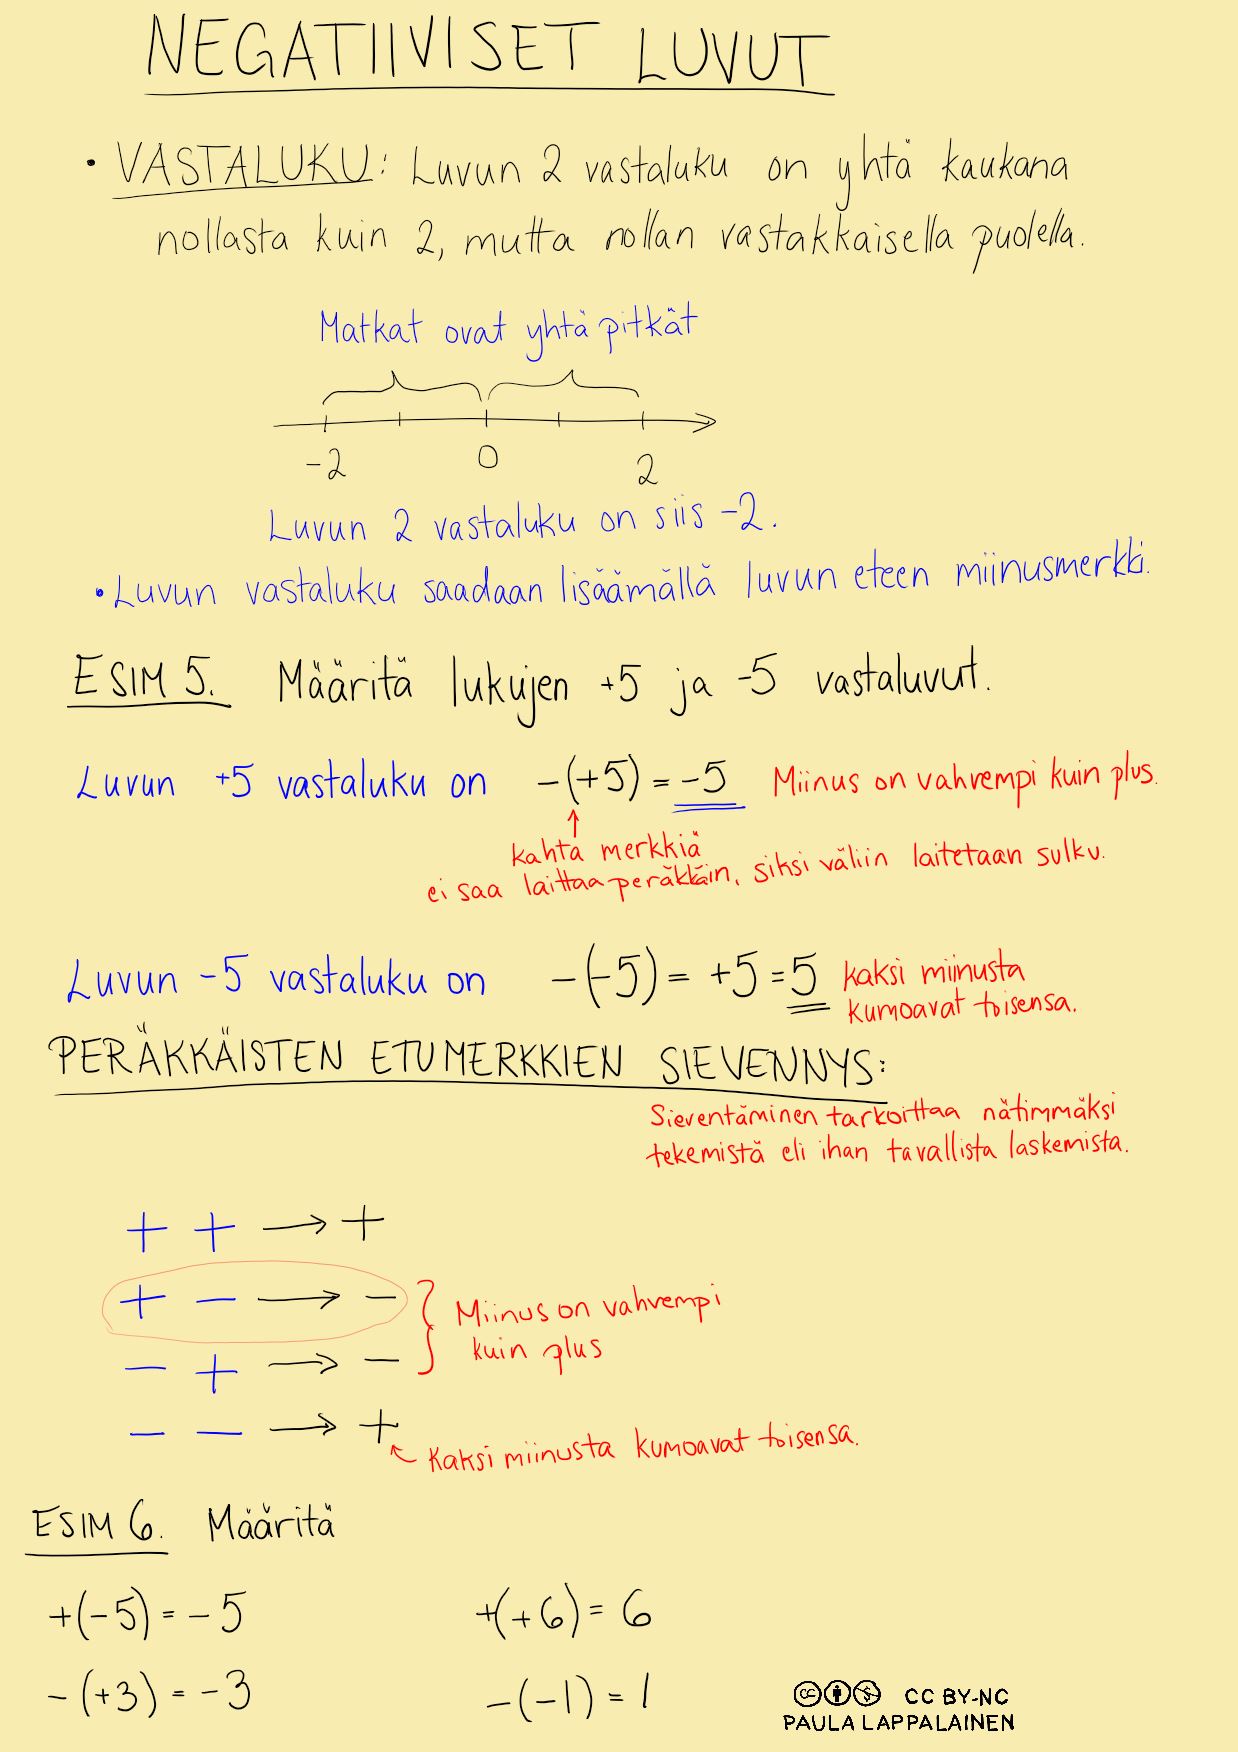 NEGATIIVISET LUVUT
• VASTALUKU: Luvun 2 vastaluku on yhtä kaukana
nollasta kuin 2, mutta nollan vastakkaisella puolella.
Matkat ovat yhtä pitkät
-2 0 2
Luvun 2 vastaluku on siis -2.
• Luvun vastaluku saadaan lisäämällä luvun eteen miinusmerkki.
ESIM 5. Määritä lukujen +5 ja -5 vastaluvut.
Luvun +5 vastaluku on -(+5) = -5 Miinus on vahvempi kuin plus.
↑
kahta merkkiä
ei saa laittaa peräkkäin, siksi väliin laitetaan sulku.
Luvun -5 vastaluku on -(-5) = +5 = 5 kaksi miinusta
kumoavat toisensa.
PERÄKKÄISTEN ETUMERKKIEN SIEVENNYS:
Sieventäminen tarkoittaa nätimmäksi
tekemistä eli ihan tavallista laskemista.
+ + → +
+ - → -
- + → -
Miinus on vahvempi
kuin plus
- - → +
Kaksi miinusta kumoavat toisensa.
ESIM 6. Määritä
+(-5) = -5 +(+6) = 6
-(+3) = -3 -(-1) = 1
CC BY-NC
PAULA LAPPALAINEN